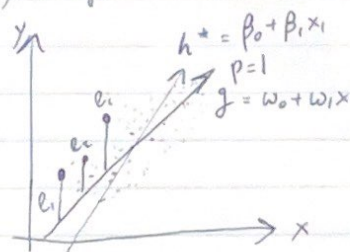 y
h* = β₀ + β₁x₁
p=1
g = ω₀ + ω₁x
e₁
e₂
e₁
x